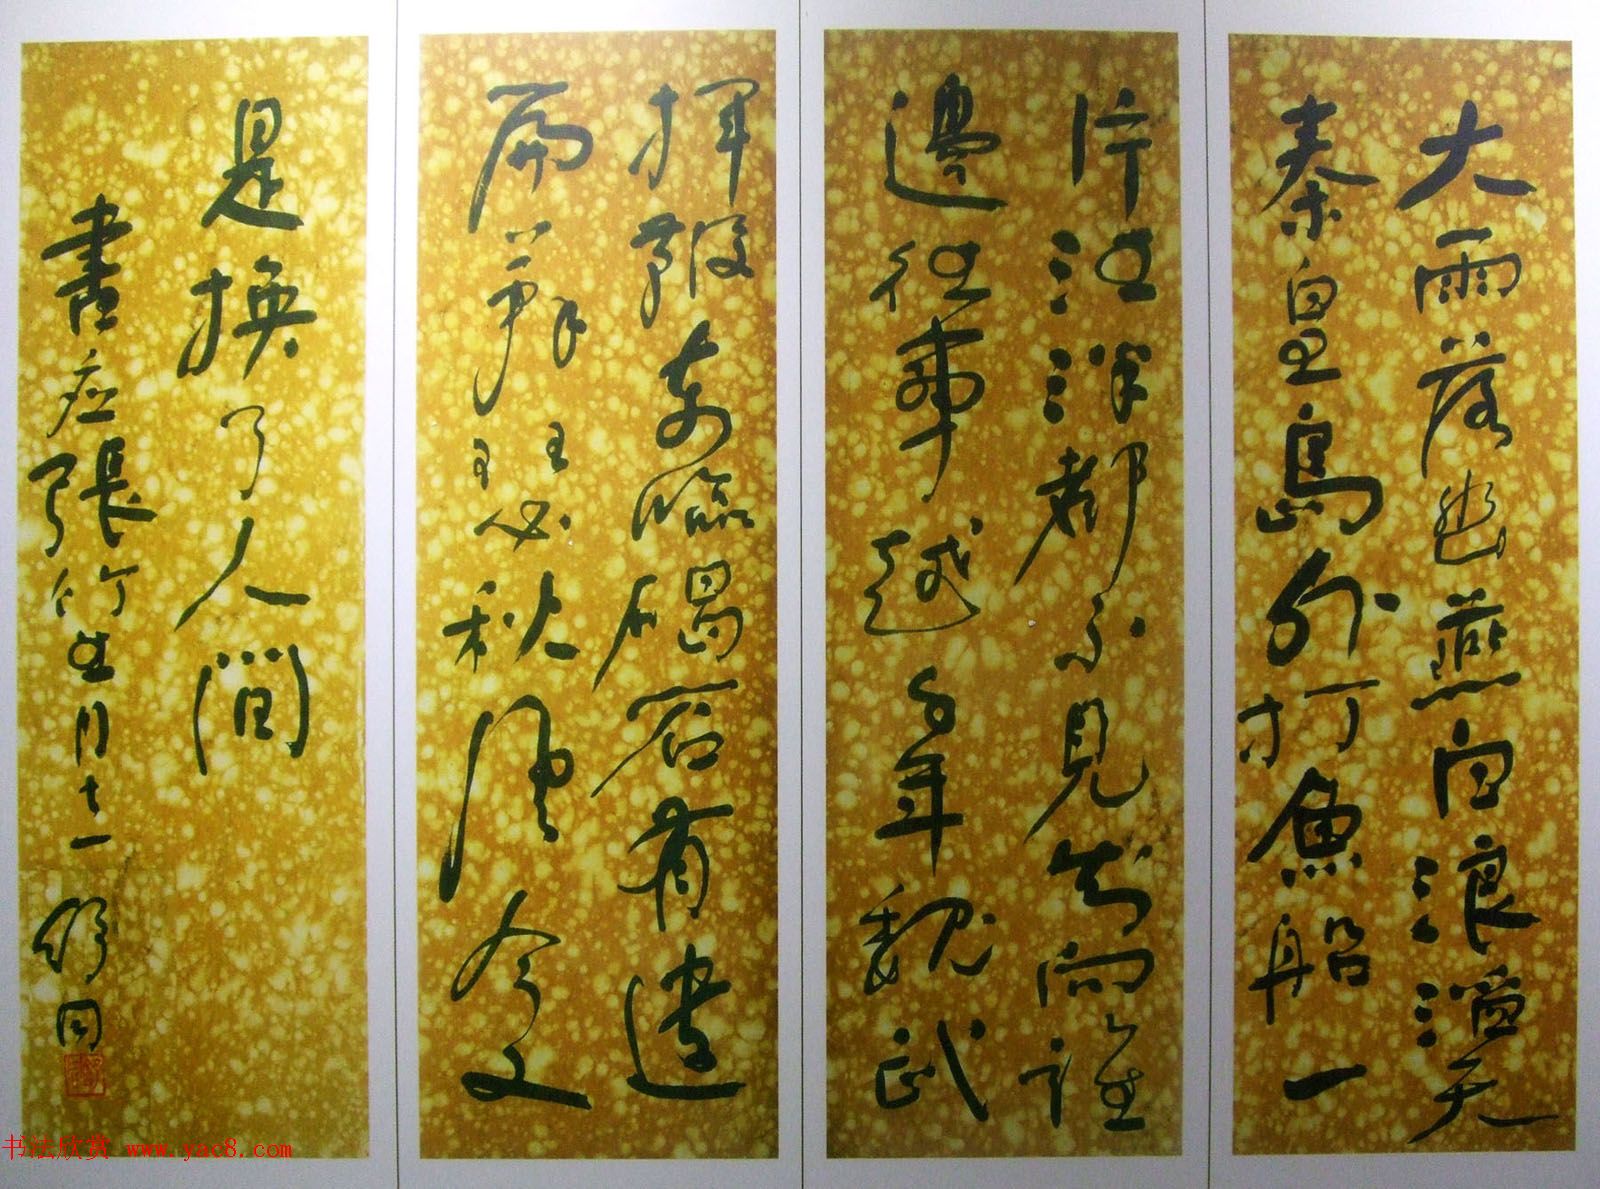 大雨落幽燕白浪滔天
秦皇島外打魚船一
片汪洋都不見知向誰
邊往事越千年魏武
揮鞭東臨碣石有遺
篇蕭瑟秋風今又
是換了人間
書应張竹生同志 舒同
书法欣赏 www.yac8.com